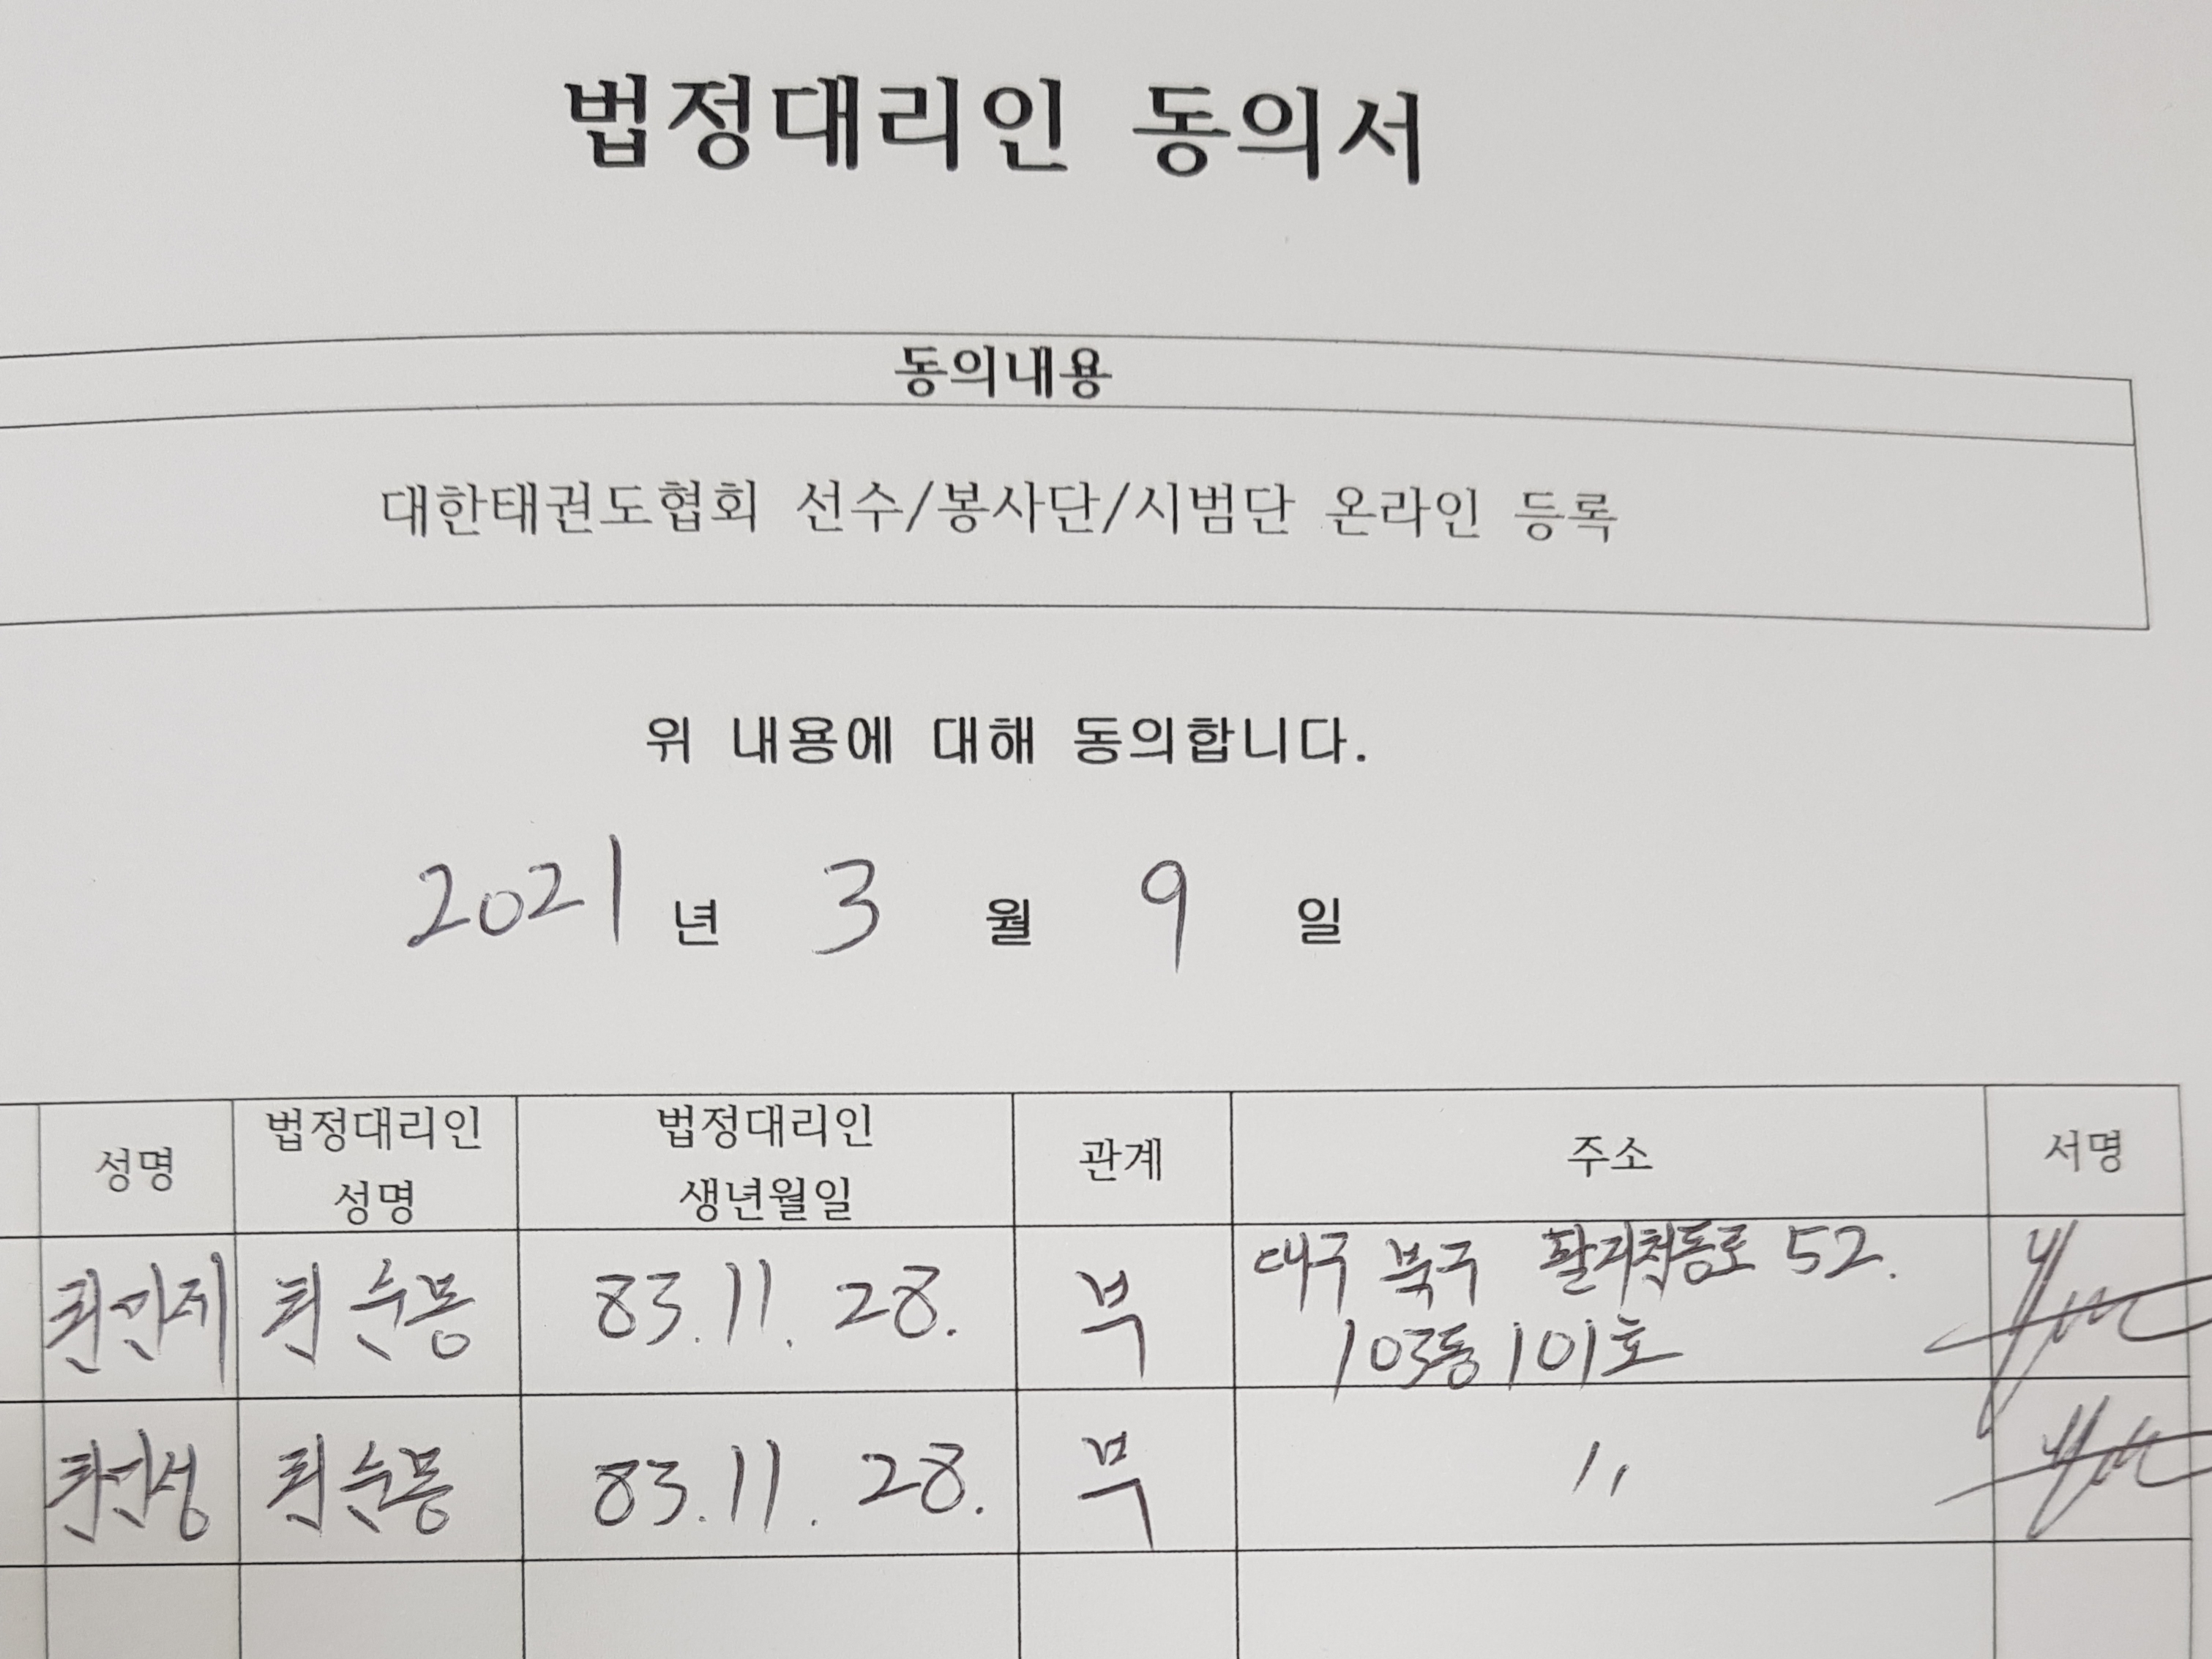 법정대리인 동의서
동의내용
대한태권도협회 선수/봉사단/시범단 온라인 등록
위 내용에 대해 동의합니다.
2021 년 3 월 9 일
성명 법정대리인 성명 법정대리인 생년월일 관계 주소 서명
최순동 83.11.28. 부 대구 북구 52.
103동 101호
최순동 83.11.28. 부 〃